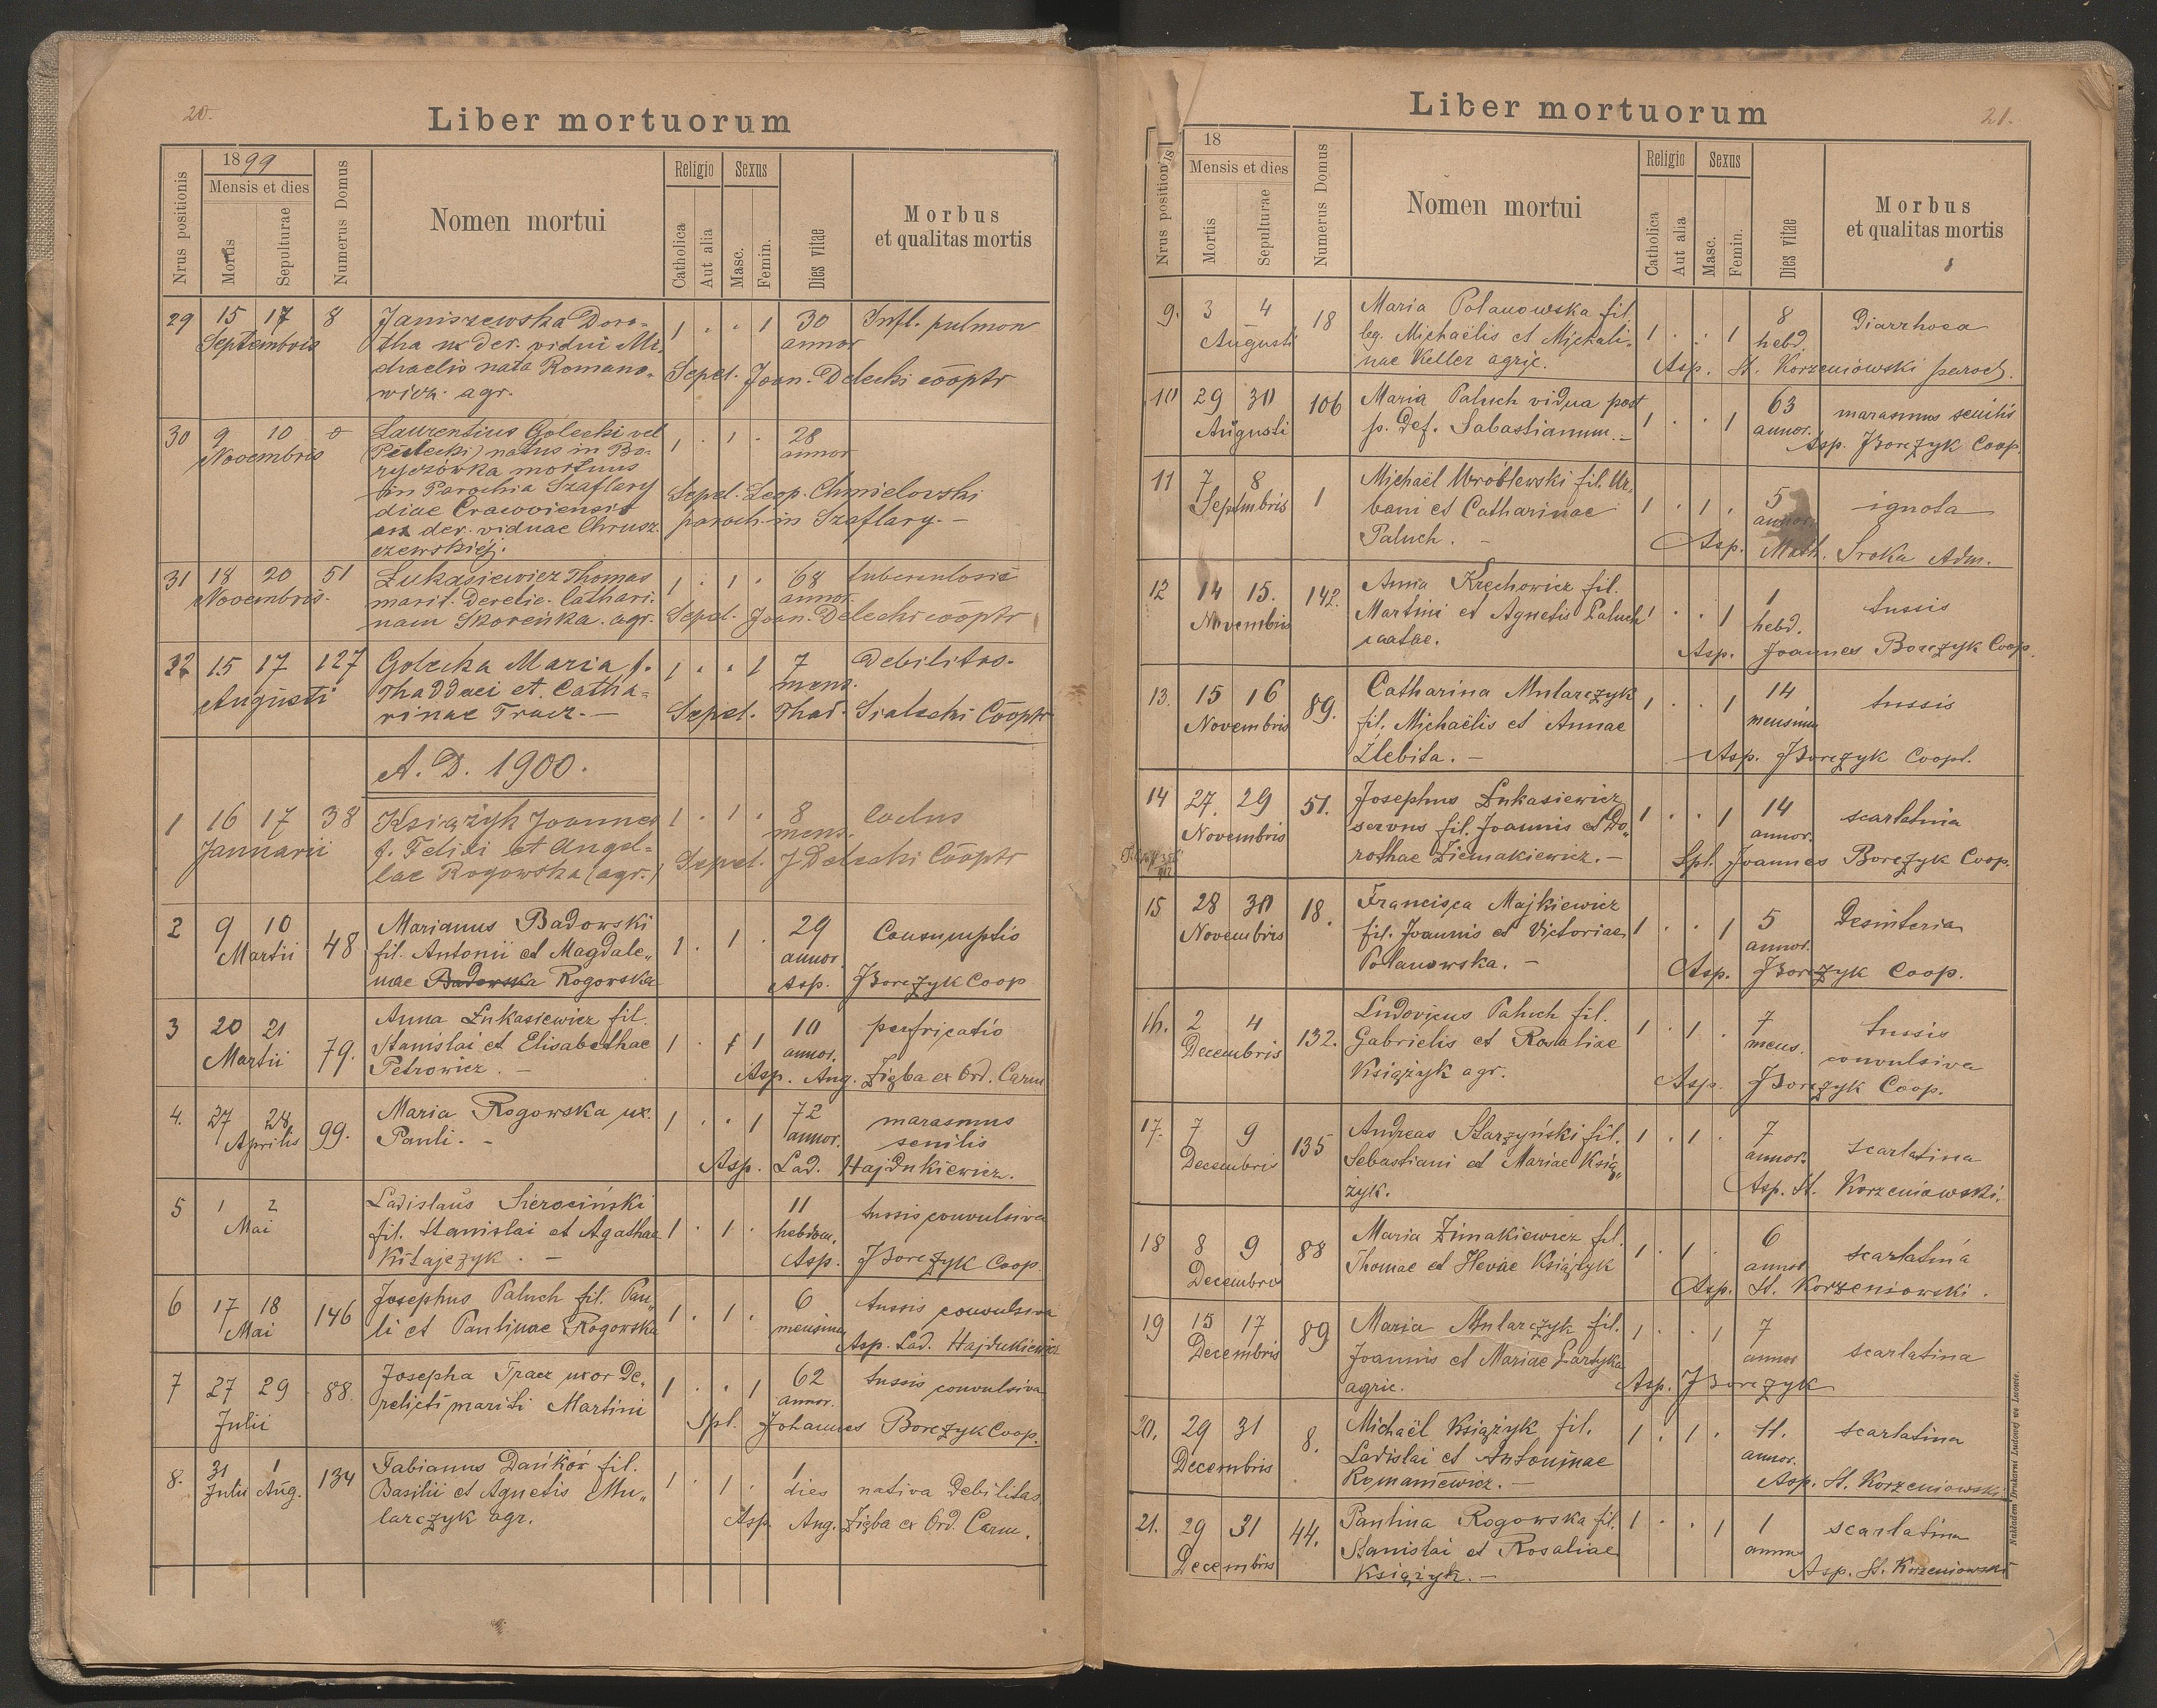 20.
Liber mortuorum
Nrus positionis
1899
Mensis et dies
Mortis
Sepulturae
Numerus Domus
Nomen mortui
Religio
Catholica
Aut alia
Sexus
Masc.
Femin.
Dies vitae
Morbus
et qualitas mortis
29 15 17 8 Janiszewska Doro- 1 . . 1 30 Infl. pulmon
Septembris tha ux der. vidui Mi- annor
chaelis nata Romano- Sepel. Joan. Delecki cooptr
wicz. agr.
30 9 10 0 Laurentius Golecki vel 1 . 1 . 28
Novembris natus in Bo- annor
ryczówka mortuus
in Parochia Szaflary Sepel. Leop. Chmielovski
diae Cracoviensis paroch. in Szaflary. -
der. viduae Chrusz
czewskiéj.
31 18 20 51 Łukasiewicz Thomas 1 . 1 . 68 tuberculosis
Novembris. marit. Derelic. Cathari- annor.
nam Skoreńka. agr. Sepel. Joan. Delecki cooptr
32 15 17 127 Golecka Maria f. 1 . . 1 7 Debilitas.
Augusti Thaddaei et Catha- mens.
rinae Tracz. - Sepel. Thad. Sialecki Cooptr
A. D. 1900.
1 16 17 38 Książyk Joannes 1 . 1 . 8
Januarii f. Felixi et Angel- mens.
lae Rogowska (agr.) Sepel. J Delecki Cooptr
2 9 10 48 Marianus Badowski 1 . 1 . 29 Consumptio
Martii fil. Antonii et Magdale„ annor.
nae Badowska Rogowska Asp. JBorczyk Coop
3 20 21 79. Anna Łukasiewicz fil. 1 . 1 10 perfricatio
Martii Stanislai et Elisabethae annor.
Petrowicz. - Asp. Aug. Zięba ex Ord. Carm
4. 27 28 99. Maria Rogowska ux. 1 . . 1 72 marasmus
Aprilis Pauli. - annor. senilis
Asp. Lad. Hajdukiewicz.
5 1 2 Ladislaus Sierociński 1 . 1 . 11 tussis convulsiva
Mai fil. Stanislai et Agathae hebdom.
Kitajczyk. - Asp. JBorczyk Coop.
6 17 18 146 Josephus Paluch fil. Pau„ 1 . 1 . 6 tussis convulsiva
Mai li et Paulinae Rogowska mensium
Asp. Lad. Hajdukiewicz
7 27 29 88. Josepha Tracz uxor De„ 1 . . 1 62 tussis convulsiva
Julii relicti mariti Martini annor.
Spl. Johannes Borczyk Coop.
8. 31 1 134 Fabianus Dańków fil. 1 . 1 . 1
Julii Aug. Basilii et Agnetis Mu„ dies nativa Debilitas
larczyk agr. Asp. Aug. Zięba ex Ord. Carm.
21.
Liber mortuorum
Nrus positionis
18
Mensis et dies
Mortis
Sepulturae
Numerus Domus
Nomen mortui
Religio
Catholica
Aut alia
Sexus
Masc.
Femin.
Dies vitae
Morbus
et qualitas mortis
9. 3 4 18 Maria Polanowska fil. 1 . . 1 8 Diarrhoea
Augusti leg. Michaëlis et Michali„ hebd.
nae Keller agric. Asp. St. Korzeniowski paroch.
10 29 30 106 Maria Paluch vidua post 1 . . 1 63 marasmus senilis
Augusti p. Def. Sabastianum. - annor. Asp. JBorczyk Coop.
11 7 8 1 Michaël Wróblewski fil. Ur„ 1 . 1 . 5 ignota
Septmbris bani et Catharinae annor.
Paluch. - Asp. Math. Sroka Adm.
12 14 15. 142. Anna Krechowicz fil. 1 . . 1 1 tussis
Novembris Martini et Agnetis Paluch hebd.
natae. Asp. Joannes Borczyk Coop.
13. 15 16 89. Catharina Mularczyk 1 . . 1 14 tussis
Novembris fil. Michaëlis et Annae mensium
Żlebita. - Asp. JBorczyk Coopt.
14 27. 29 51. Josephus Łukasiewicz 1 . . 1 14 scarlatina
Novembris servus fil. Joannis et Do„ annor.
rothae Ziemakiewicz. - Spl. Joannes Borczyk Coop.
15 28 30 18. Francisca Majkiewicz 1 . . 1 5 Desinteria
Novembris fil. Joannis et Victoriae annor.
Polanowska. - Asp. JBorczyk Coop.
16. 2 4 132. Ludovicus Paluch fil. 1 . 1 . 7 tussis
Decembris Gabrielis et Rosaliae mens. convulsiva
Książyk agr. Asp. JBorczyk Coop.
17. 7 9 135 Andreas Starzyński fil. 1 . 1 . 7 scarlatina
Decembris Sebastiani et Mariae Ksią„ annor.
żyk. Asp. St. Korzeniowski.
18 8 9 88 Maria Zimakiewicz fil. 1 . 1 . 6 scarlatina
Decembris Thomae et Hevae Książyk annor
Asp. St. Korzeniowski.
19 15 17 89 Maria Mularczyk fil. 1 . . 1 7 scarlatina
Decembris Joannis et Mariae Partyka annor
agric. Asp. JBorczyk
20. 29 31 8. Michaël Książyk fil. 1 . 1 . 11. scarlatina
Decembris Ladislai et Antoninae annor.
Romaniewicz. - Asp. St. Korzeniowski
21. 29 31 44. Paulina Rogowska fil. 1 . . 1 1 scarlatina
Decembris Stanislai et Rosaliae anni
Książyk. - Asp. St. Korzeniowski
Nakładem Drukarni Ludowej we Lwowie.